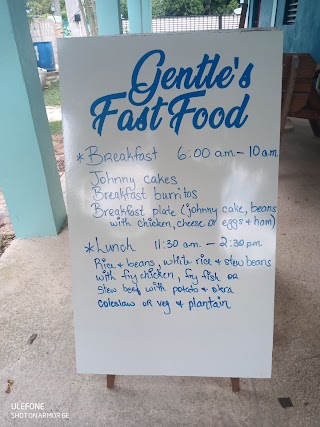 Gentle's
Fast Food
* Breakfast 6:00 a.m. - 10 a.m.
Johnny cakes
Breakfast burritos
Breakfast plate (johnny cake, beans
with chicken, cheese or eggs & ham)
* Lunch 11:30 a.m. - 2:30 p.m.
Rice & beans, white rice & stew beans
with fry chicken, fry fish or
stew beef with potato & okra
coleslaw or veg & plantain
ULEFONE
SHOT ON ARMOR GE